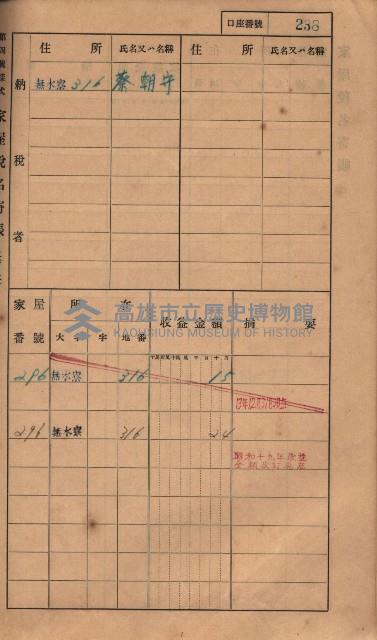 口座番號 238
第四號樣式 家屋稅名寄帳
納稅者
住所 氏名又ハ名稱 住所 氏名又ハ名稱
無水寮 316 蔡朝守
家屋番號 所在 收益金額 摘要
大字 字 地番
296 無水寮 316 15
296 無水寮 316 24
昭和十九年改正
高雄市立歷史博物館
KAOHSIUNG MUSEUM OF HISTORY